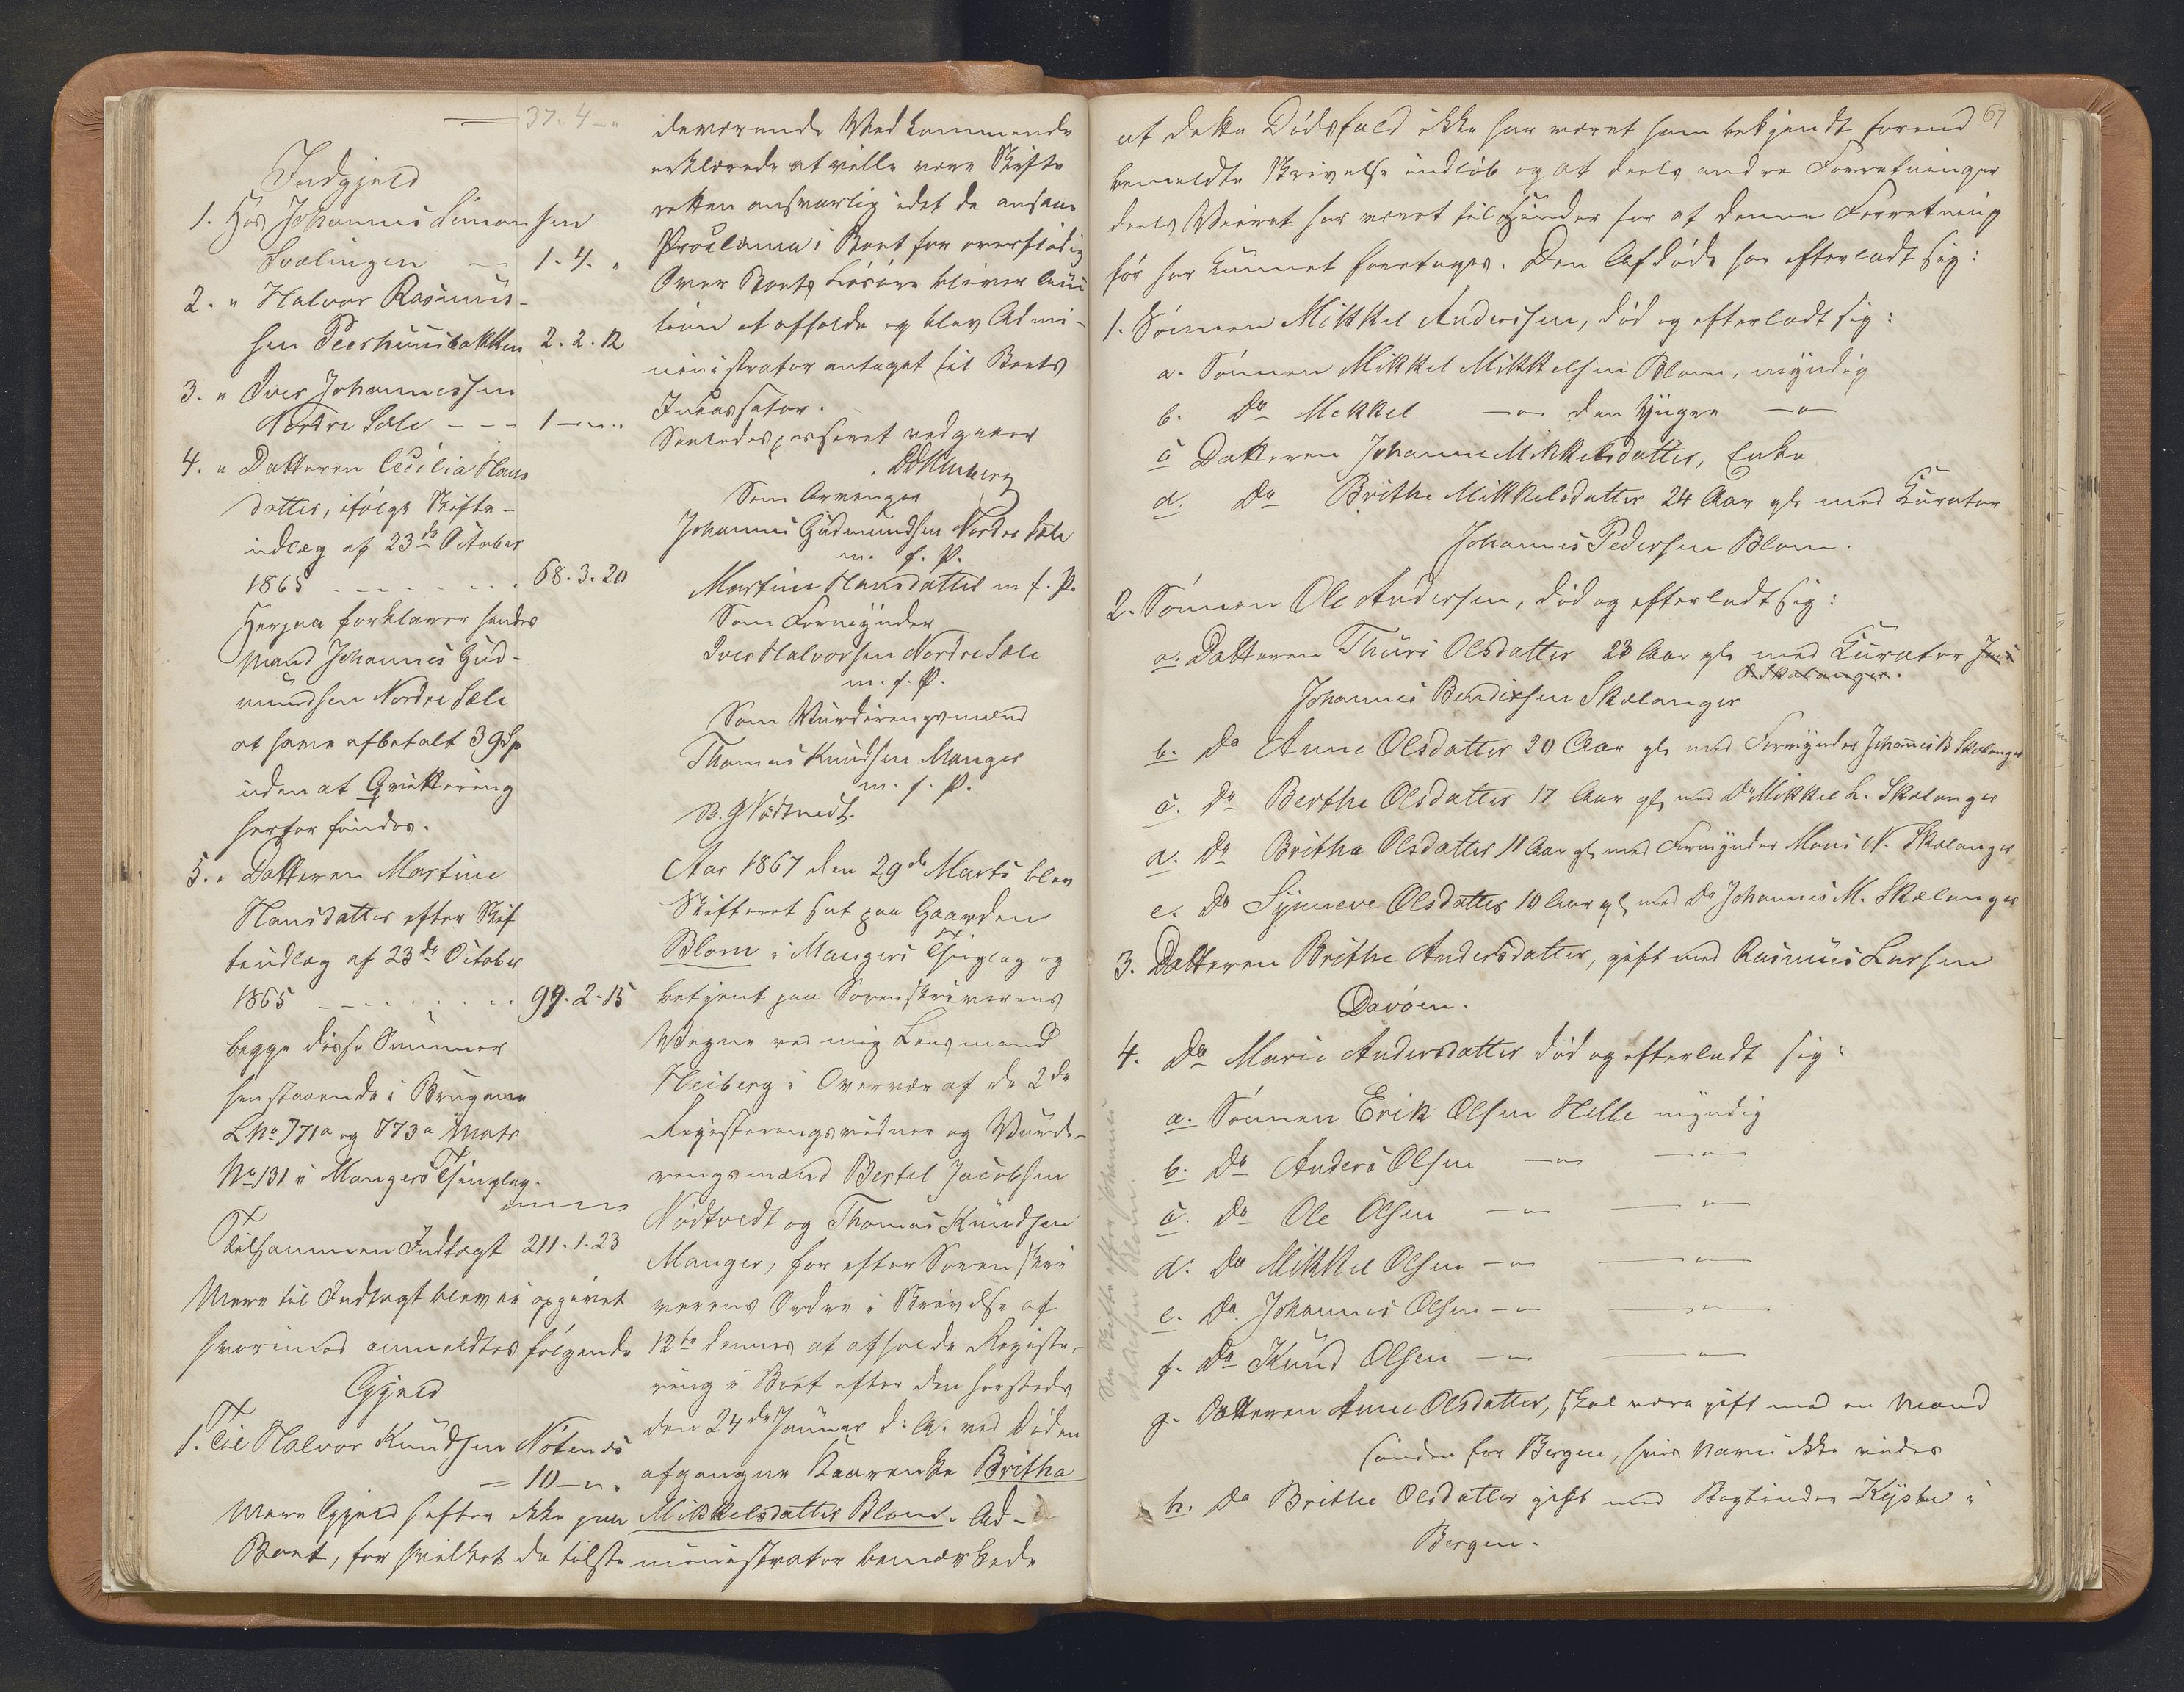 37. 4 - "
Indgjeld
1. Hos Johannes Simonsen
Svælingen - - 1. 4. "
2. " Halvor Rasmus-
sen Peershuusbakken 2. 2. 12
3. " Iver Johannessen
Nordre Sæle - - - 1 - " - "
4. " Datteren Cecilia Hans
datter, ifølge Skifte-
udlæg af 23de October
1865 - - - - - - 68. 3. 20
Herpaa forklarer hendes
Mand Johannes Gud-
mundsen Nordre Sæle
at have afbetalt 3 Spd
uden at Qvittering
herfor findes.
5. " Datteren Martine
Hansdatter efter Skif
teudlæg af 23de October
1865 - - - - - - 99. 2. 15
begge disse Summer
henstaaende i Brugene
LNo 771a og 773a Matr
No 131 i Mangers Thinglag.
Tilsammen Indtægt 211. 1. 23
Mere til Indtægt blev ei opgivet
hvorimod anmeldtes følgende
Gjeld
1. Til Halvor Knudsen Nøtenes
= 10 - " - "
Mere Gjeld hefter ikke paa
Boet, for hvilket de tilste
deværende Vedkommende
erklærede at ville være Skifte
retten ansvarlig idet de ansaae
Proclama i Boet for overflødig
Over Boets Løsøre bliver Auc
tion at afholde og blev Admi-
nistrator antaget til Boets
Incassator.
Saaledes passeret vedgaaes
Som Arvinger
Johannes Gudmundsen Nordre Sæle
m. f. P.
Martine Hansdatter m. f. P.
Som Formynder
Iver Halvorsen Nordre Sæle
m. f. P.
Som Vurderingsmænd
Thomas Knudsen Manger
m. f. P.
B. J. Nødtvedt.
Aar 1867 den 29de Marts blev
Skifteret sat paa Gaarden
Blom i Mangers Thinglag og
betjent paa Sorenskriverens
Vegne ved mig Lensmand
Heiberg i Overvær af de 2de
Registeringsvidner og Vurde-
ringsmænd Bertel Jacobsen
Nødtvedt og Thomas Knudsen
Manger, for efter Sorenskri
verens Ordre i Skrivelse af
12te dennes at afholde Registe-
ring i Boet efter den hersteds
den 24de Januar d: A. ved Døden
afgangne Kaarenke Britha
Mikkelsdatter Blom. Ad-
ministrator bemærkede
67
at dette Dødsfald ikke har været ham bekjendt forend
bemeldte Skrivelse indløb og at deels andre Forretninger
deels Veiret har været til Hinder for at denne Forretning
før har kunnet foretages. Den Afdøde har efterladt sig:
1. Sønnen Mikkel Andersen, død og efterladt sig:
a. Sønnen Mikkel Mikkelsen Blom, myndig
b. Do Mikkel - " - den yngre - " -
c Datteren Johanne Mikkelsdatter, Enke
d. Do Brithe Mikkelsdatter 24 Aar gl. med Curator
Johannes Pedersen Blom.
2. Sønnen Ole Andersen, død og efterladt sig:
a. Datteren Thuri Olsdatter 23 Aar gl. med Curator
Skælanger.
Johannes Bendixsen Skælanger
b. Do Anne Olsdatter 20 Aar gl. med Formynder Johannes B. Skælanger
c. Do Berthe Olsdatter 17 Aar gl. med Do Mikkel L. Skælanger
d. Do Britha Olsdatter 11 Aar gl. med Formynder Mons N. Skælanger
e. Do Synneve Olsdatter 10 Aar gl. med Do Johannes M. Skælanger
3. Datteren Brithe Andersdatter, gift med Rasmus Larsen
Davøen.
4. Do Marie Andersdatter død og efterladt sig:
a. Sønnen Erik Olsen Helle myndig
b. Do Anders Olsen - " - - " -
c. Do Ole Olsen - " - - " -
d. Do Mikkel Olsen - " - - " -
e. Do Johannes Olsen - " - - " -
f. Do Knud Olsen - " - - " -
g. Datteren Anne Olsdatter, skal være gift med en Mand
sønden for Bergen, hvis Navn ikke vides
h. Do Brithe Olsdatter gift med Bogbinder i
Bergen.
Skifte efter Johannes
Blom.